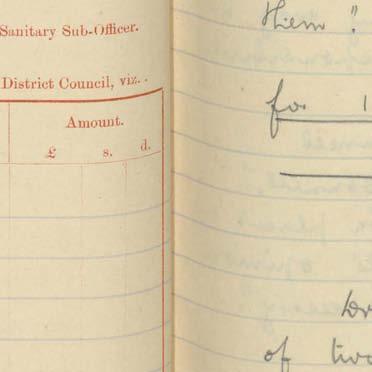 Sanitary Sub-Officer.
District Council, viz. .
Amount.
£ s. d.
them".
for 1
of two